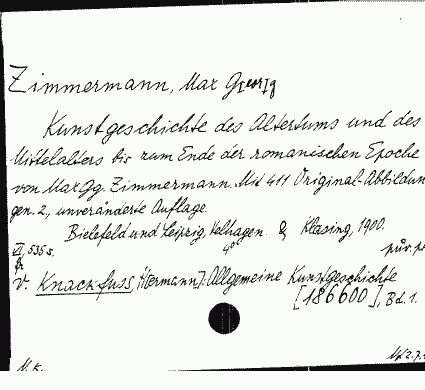 Zimmermann, Max G[eor]g
Kunstgeschichte des Altertums und des
Mittelalters bis zum Ende der romanischen Epoche
von Max Gg. Zimmermann. Mit 411 Original-Abbildun
gen. 2., unveränderte Auflage.
Bielefeld und Leipzig, Velhagen & Klasing, 1900.
VI, 535 s. 4°
v. Knackfuss, H[ermann]: Allgemeine Kunstgeschichte
[186600], Bd. 1.